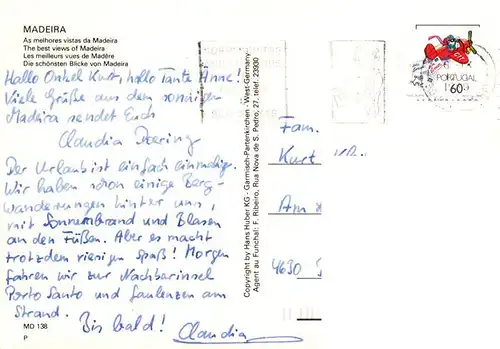 MADEIRA
As melhores vistas da Madeira
The best views of Madeira
Les meilleurs vues de Madère
Die schönsten Blicke von Madeira
Hallo Onkel Kurt, hallo Tante Änne!
Viele Grüße aus dem sonnigen
Madeira sendet Euch
Claudia Doering
Der Urlaub ist einfach einmalig.
Wir haben schon einige Berg-
wanderungen hinter uns,
mit Sonnenbrand und Blasen
an den Füßen. Aber es macht
trotzdem riesigen Spaß! Morgen
fahren wir zur Nachbarinsel
Porto Santo und faulenzen am
Strand.
Bis bald!
Claudia
MD 138
P
Copyright by Hans Huber KG - Garmisch-Partenkirchen - West-Germany
Agent au Funchal: F. Ribeiro, Rua Nova de S. Pedro, 27, telef. 23930
PORTUGAL
60
Fam.
Kurt
Am
4630